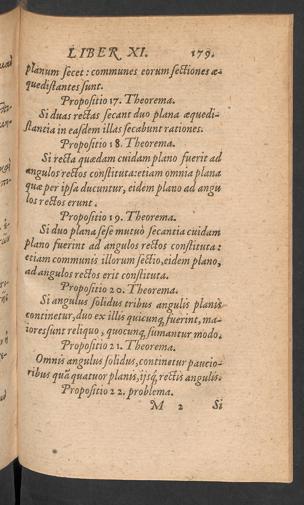 LIBER XI. 179.
planum secet: communes eorum sectiones æ-
quedistantes sunt.
Propositio 17. Theorema.
Si duas rectas secant duo plana æquedi-
stantia in easdem illas secabunt rationes.
Propositio 18. Theorema.
Si recta quædam cuidam plano fuerit ad
angulos rectos constituta: etiam omnia plana
quæ per ipsa ducuntur, eidem plano ad angu
los rectos erunt.
Propositio 19. Theorema.
Si duo plana sese mutuò secantia cuidam
plano fuerint ad angulos rectos constituta:
etiam communis illorum sectio, eidem plano,
ad angulos rectos erit constituta.
Propositio 20. Theorema.
Si angulus solidus tribus angulis planis
continetur, duo ex illis quicunq; fuerint, ma-
iores sunt reliquo, quocunq; sumantur modo.
Propositio 21. Theorema.
Omnis angulus solidus, continetur paucio-
ribus quã quatuor planis, ijsq́; rectis angulis.
Propositio 22. problema.
M 2 Si